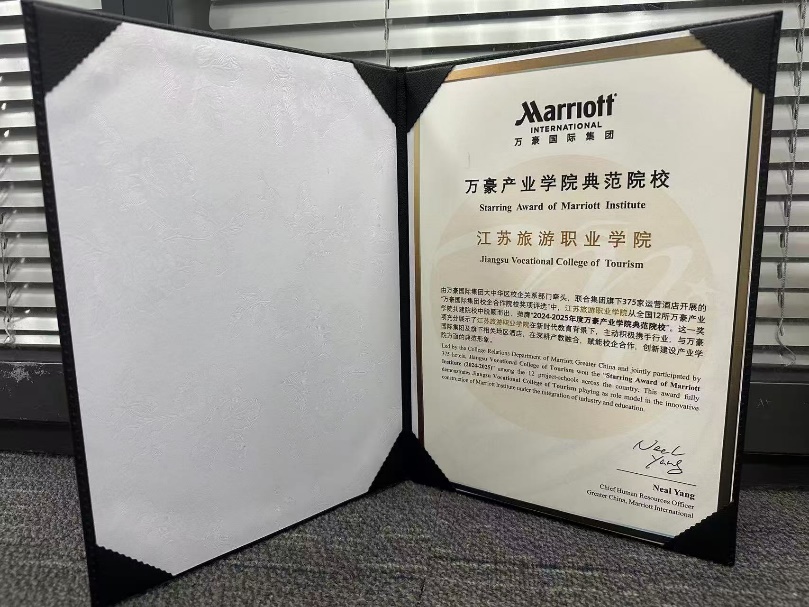 Marriott
INTERNATIONAL
万豪国际集团
万豪产业学院典范院校
Starring Award of Marriott Institute
江苏旅游职业学院
Jiangsu Vocational College of Tourism
由万豪国际集团大中华区校企关系部门牵头，联合集团旗下375家运营酒店开展的
“万豪国际集团校企合作院校奖项评选”中，江苏旅游职业学院从全国12所万豪产业
学院共建院校中脱颖而出，勇摘“2024-2025年度万豪产业学院典范院校”。这一奖
项充分展示了江苏旅游职业学院在新时代教育背景下，主动积极携手行业，与万豪
国际集团及旗下相关地区酒店，在深耕产教融合、赋能校企合作、创新建设产业学
院方面的典范形象。
Led by the College Relations Department of Marriott Greater China and jointly participated by
375 hotels, Jiangsu Vocational College of Tourism won the "Starring Award of Marriott
Institute (2024-2025)" among the 12 project-schools across the country. This award fully
demonstrates Jiangsu Vocational College of Tourism playing as role model in the innovative
construction of Marriott Institute under the integration of industry and education.
Neal
Yang
Neal Yang
Chief Human Resources Officer
Greater China, Marriott International